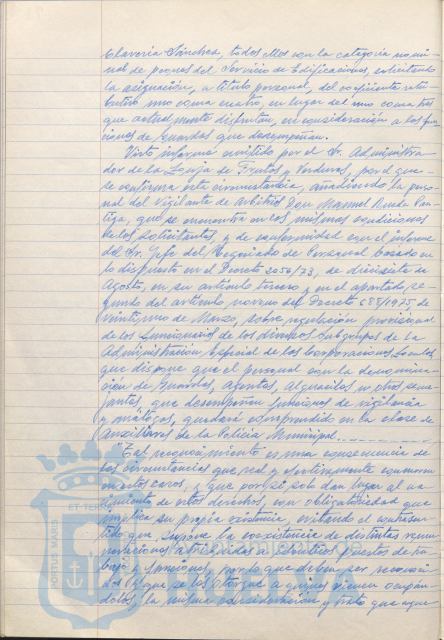 Clavería Sánchez, todos ellos con la categoría nomi-
nal de peones del Servicio de Edificaciones, solicitando
la asignación, a título personal, del coeficiente retri-
butivo uno coma cuatro, en lugar del uno coma tres
que actualmente disfrutan, en consideración a las fun-
ciones de Guardas que desempeñan.
Visto informe emitido por el Sr. Administra-
dor de la Lonja de Frutas y Verduras, por el que
se confirma esta circunstancia, añadiendo la perso-
nal del Vigilante de Arbitrios Don Manuel
que se encuentra en las mismas condiciones
de los solicitantes, y de conformidad con el informe
del Sr. Jefe del Negociado de Personal basado en
lo dispuesto en el Decreto 2056/73, de diecisiete de
Agosto, en su artículo tercero y en el apartado se-
gundo del artículo noveno del Decreto 688/1975 de
veintiuno de Marzo, sobre regulación provisional
de los funcionarios de los diversos Subgrupos de la
Administración Especial de las Corporaciones Locales
que dispone que el personal con la denomina-
ción de Guardas, Agentes, Alguaciles u otros seme-
jantes, que desempeñan funciones de vigilancia
y análogas, quedará comprendido en la clase de
Auxiliares de la Policía Municipal.
"Tal reconocimiento es una consecuencia de
las circunstancias que real y efectivamente concurren
en estos casos, y que por sí solo dan lugar al na-
cimiento de estos derechos, con obligatoriedad que
implica su propia existencia, evitando el contrasen-
tido que supone la coexistencia de distintas remu-
neraciones atribuidas a idénticos puestos de tra-
bajo y funciones, por lo que deben ser reconoci-
dos y que se les otorgue a quienes vienen ocupán-
dolos, la misma consideración y trato que aque-
PORTUS MARIS ET TERRAE